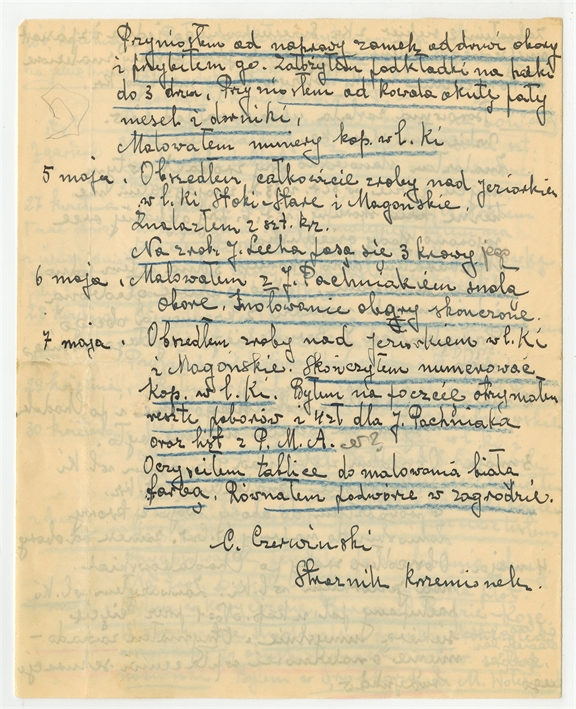 Przyniosłem od naprawy zamek od drzwi obory
i przybiłem go. Założyłem podkładki na haki
do 3 drzw. Przyniosłem od kowala okuty pały
mesel i darniki,
Malowałem numery kop. w l. Ki
5 maja. Obszedłem całkowicie zroby nad jeziorkiem
w l. Ki Stoki-Stare i Magońskie.
Znalazłem 2 szt. krz.
Na zrob. J. Lecha pasą się 3 krowy jego
6 maja. Malowałem z J. Pachniakiem smołą
oborę. Smołowanie obory skończone.
7 maja. Obszedłem zroby nad jeziorkiem w l. Ki
i Magońskie. Skończyłem numerować
kop. w l. Ki. Byłem na poczcie otrzymałem
resztę poborów i 4 zł dla J. Pachniaka
oraz list z P. M. A.
Oczyściłem tablice do malowania białą
farbą. Równałem podwórze w zagrodzie.
C. Czerwiński
Strażnik Krzemionek.